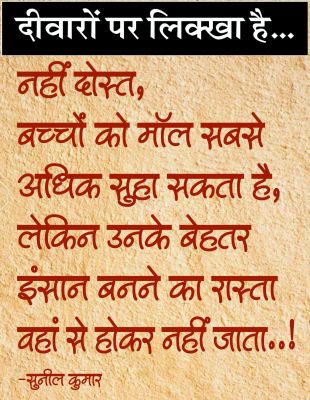 दीवारों पर लिक्खा है...
नहीं दोस्त,
बच्चों को मॉल सबसे
अधिक सुहा सकता है,
लेकिन उनके बेहतर
इंसान बनने का रास्ता
वहां से होकर नहीं जाता..!
-सुनील कुमार